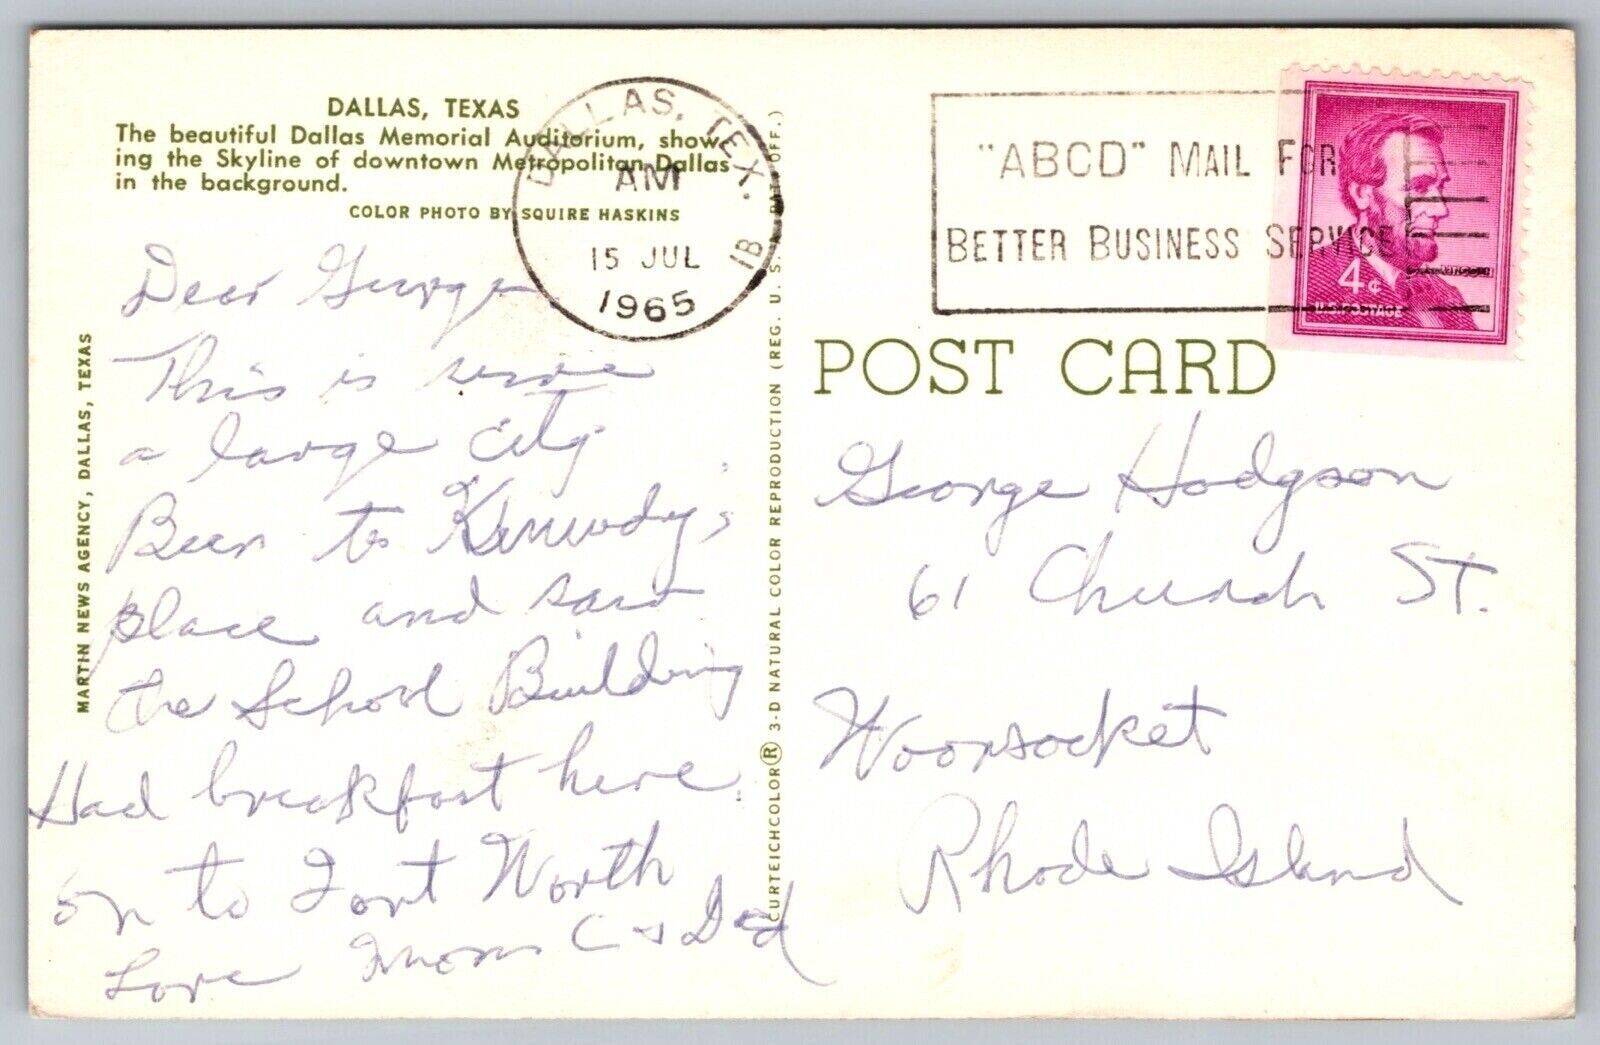 DALLAS, TEXAS
The beautiful Dallas Memorial Auditorium, show-
ing the Skyline of downtown Metropolitan Dallas
in the background.
COLOR PHOTO BY SQUIRE HASKINS
DALLAS, TEX.
AM
15 JUL
1965
1B
"ABCD" MAIL FOR
BETTER BUSINESS SERVICE
4¢
U.S. POSTAGE
LINCOLN
MARTIN NEWS AGENCY, DALLAS, TEXAS
CURTEICHCOLOR ® 3-D NATURAL COLOR REPRODUCTION (REG. U. S. PAT. OFF.)
POST CARD
Dear George
This is
a large city
Been to Kennedy's
place and saw
the School Building
Had breakfast here
on to Fort Worth
Love Mom C & Dad
George Hodgson
61 Church St.
Woonsocket
Rhode Island